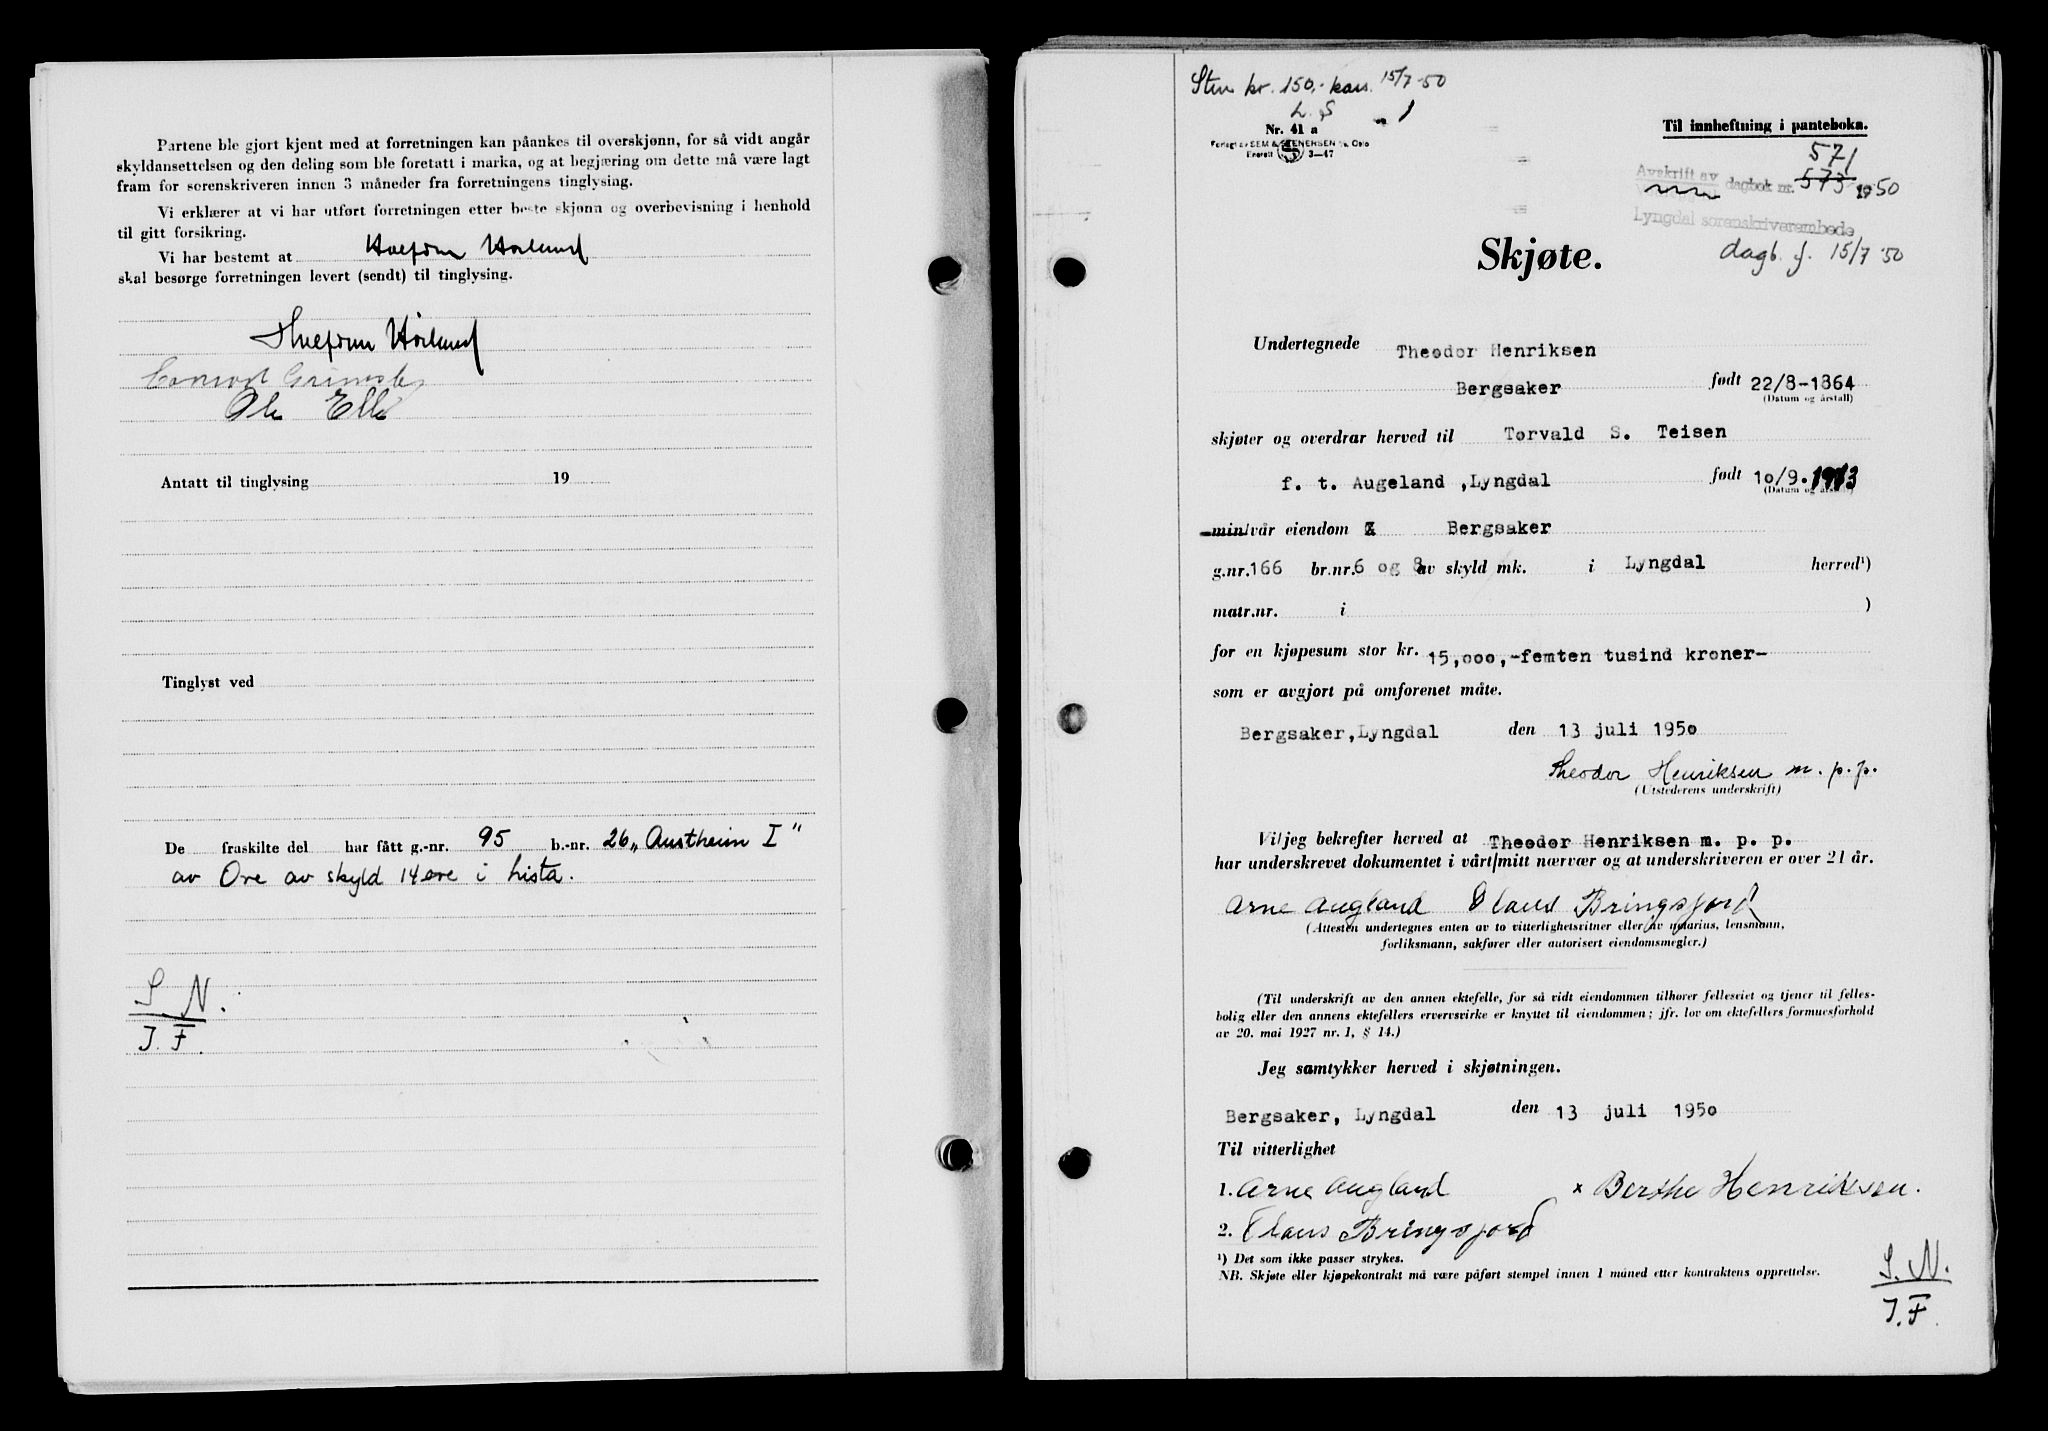 Partene ble gjort kjent med at forretningen kan påankes til overskjønn, for så vidt angår
skyldansettelsen og den deling som ble foretatt i marka, og at begjæring om dette må være lagt
fram for sorenskriveren innen 3 måneder fra forretningens tinglysing.
Vi erklærer at vi har utført forretningen etter beste skjønn og overbevisning i henhold
til gitt forsikring.
Vi har bestemt at
skal besørge forretningen levert (sendt) til tinglysing.
Antatt til tinglysing 19
Tinglyst ved
De fraskilte del har fått g.-nr. 95 b.-nr. 26 „Austheim I"
av Ore av skyld 14 øre i Lista.
S. N.
J. F.
kr. 150,- 15/7-50
Nr. 41 a
Forlagt av SEM & STENERSEN A/s, Oslo
Enerett 3—47
Til innheftning i panteboka.
571
Avskrift av dagbok nr. 573 1950
Lyngdal sorenskriverembede
dagb. f. 15/7 50
Skjøte.
Undertegnede Theodor Henriksen
Bergsaker født 22/8-1864
(Datum og årstall)
skjøter og overdrar herved til Torvald S. Teisen
f. t. Augeland ,Lyngdal født 10/9.1913
(Datum og årstall)
min/vår eiendom Bergsaker
g.nr. 166 br.nr. 6 og 8 av skyld mk. i Lyngdal herred¹)
matr.nr. i )
for en kjøpesum stor kr. 15,000,-femten tusind kroner-
som er avgjort på omforenet måte.
Bergsaker,Lyngdal den 13 juli 1950
Theodor Henriksen m. p. p.
(Utstederens underskrift)
Vi/jeg bekrefter herved at Theodor Henriksen m. p. p.
har underskrevet dokumentet i vårt/mitt nærvær og at underskriveren er over 21 år.
Arne Augland Claus Bringsjord
(Attesten undertegnes enten av to vitterlighetsvitner eller av notarius, lensmann,
forliksmann, sakfører eller autorisert eiendomsmegler.)
(Til underskrift av den annen ektefelle, for så vidt eiendommen tilhører fellesviet og tjener til felles-
bolig eller den annens ektefellers ervervsvirke er knyttet til eiendommen; jfr. lov om ektefellers formuesforhold
av 20. mai 1927 nr. 1, § 14.)
Jeg samtykker herved i skjøtningen.
Bergsaker, Lyngdal den 13 juli 1950
Til vitterlighet
1. Arne Augland × Berthe Henriksen.
2. Claus Bringsjord
¹) Det som ikke passer strykes.
NB. Skjøte eller kjøpekontrakt må være påført stempel innen 1 måned etter kontraktens opprettelse.
S. N.
J. F.